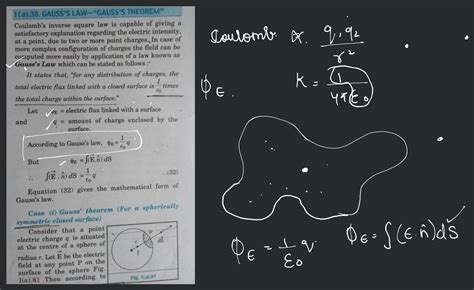 1(a).38. GAUSS'S LAW—"GAUSS'S THEOREM"
Coulomb's inverse square law is capable of giving a
satisfactory explanation regarding the electric intensity,
at a point, due to two or more point charges. In case of
more complex configuration of charges the field can be
computed more easily by application of a law known as
Gauss's Law which can be stated as follows :-
It states that, "for any distribution of charges, the
total electric flux linked with a closed surface is 1/ε₀ times
the total charge within the surface."
Let φE = electric flux linked with a surface
and q = amount of charge enclosed by the
surface.
According to Gauss's law, φE = 1/ε₀ q
But φE = ∫(E⃗.n̂) dS
∴ ∫(E⃗.n̂) dS = 1/ε₀ q ...(32)
Equation (32) gives the mathematical form of
Gauss's law.
Case (i) Gauss' theorem (For a spherically
symmetric closed surface)
Consider that a point
electric charge q is situated
at the centre of a sphere of
radius r. Let E⃗ be the electric
field at any point P on the
surface of the sphere Fig.
1(a).81 Then according to
Fig. 1(a).81
Coulomb ∝ q₁q₂/r²
φE. K = 1/4πε₀
φE = 1/ε₀ q
φE = ∫(E.n̂)dS